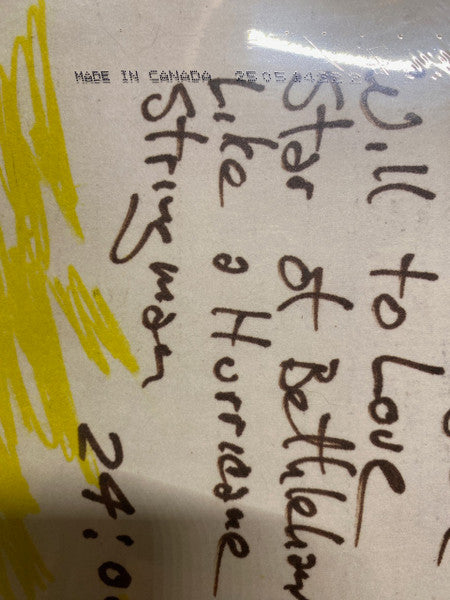 MADE IN CANADA
Will to Love
Star of Bethlehem
Like a Hurricane
Stringman
24:0